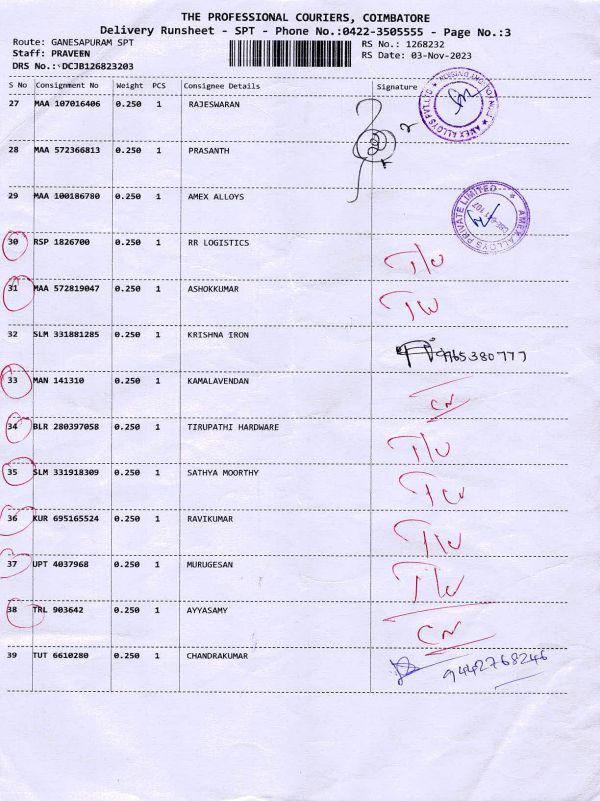 THE PROFESSIONAL COURIERS, COIMBATORE
Delivery Runsheet - SPT - Phone No.:0422-3505555 - Page No.:3
Route: GANESAPURAM SPT RS No.: 1268232
Staff: PRAVEEN RS Date: 03-Nov-2023
DRS No.: DCJB126823203
S No Consignment No Weight PCS Consignee Details Signature
27 MAA 107016406 0.250 1 RAJESWARAN
28 MAA 572366813 0.250 1 PRASANTH
29 MAA 100186780 0.250 1 AMEX ALLOYS
AMEX ALLOYS PRIVATE LIMITED
30 RSP 1826700 0.250 1 RR LOGISTICS T/W
31 MAA 572819047 0.250 1 ASHOKKUMAR TW
32 SLM 331881285 0.250 1 KRISHNA IRON
33 MAN 141310 0.250 1 KAMALAVENDAN CN
34 BLR 280397058 0.250 1 TIRUPATHI HARDWARE T/W
35 SLM 331918309 0.250 1 SATHYA MOORTHY TW
36 KUR 695165524 0.250 1 RAVIKUMAR T/W
37 UPT 4037968 0.250 1 MURUGESAN T/W
38 TRL 903642 0.250 1 AYYASAMY CN
39 TUT 6610280 0.250 1 CHANDRAKUMAR 9442768246